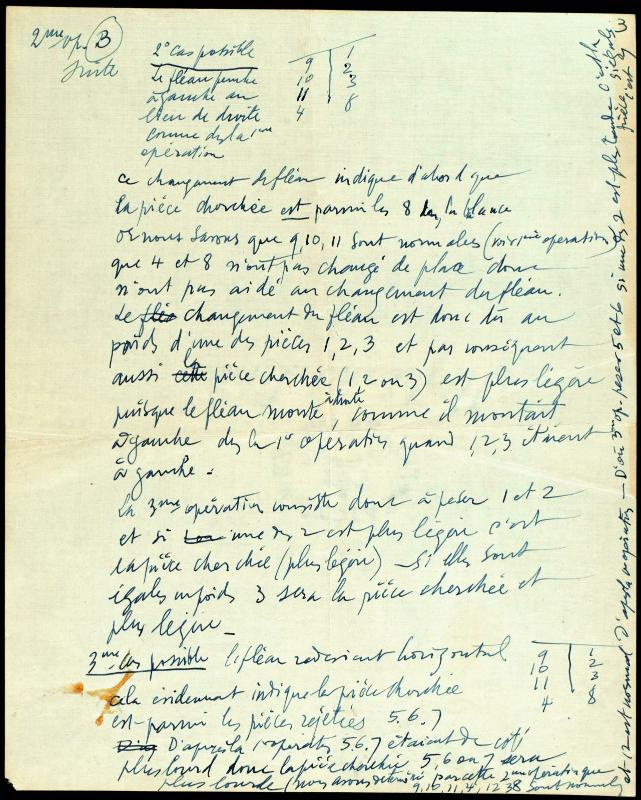 2me op. B
suite
2° cas possible
Le fléau penche
à gauche au
lieu de droite
comme ds la 1ère
opération
9 | 1
10 | 2
11 | 3
4 | 8
ce changement de fléau indique d'abord que
la pièce cherchée est parmi les 8 ds la balance
or nous savons que 9, 10, 11 sont normales (voir 1ère opération)
que 4 et 8 n'ont pas changé de place donc
n'ont pas aidé au changement du fléau.
Le changement du fléau est donc dû au
poids d'une des pièces 1, 2, 3 et par conséquent
aussi la pièce cherchée (1 2 ou 3) est plus légère
puisque le fléau monte à droite, comme il montait
à gauche ds la 1e opération quand 1, 2, 3 étaient
à gauche.
La 3me opération consiste donc à peser 1 et 2
et si une des 2 est plus légère c'est
la pièce cherchée (plus légère) – Si elles sont
égales en poids 3 sera la pièce cherchée et
plus légère –
3me cas possible le fléau redevient horizontal
9 | 1
10 | 2
11 | 3
4 | 8
cela évidemment indique la pièce cherchée
est parmi les pièces rejetées 5. 6. 7
D'après la 1e opération 5. 6. 7 étaient du côté
plus lourd donc la pièce cherchée 5, 6 ou 7 sera
plus lourde (nous avons déterminé par cette 2me opération que
9, 10, 11, 4, 1 2 3 8 sont normales
et 12 est normal d'après opération – D'où 3me op. peser 5 et 6 si une des 2 est plus lourde c'est la
pièce si égales
c'est 7
3